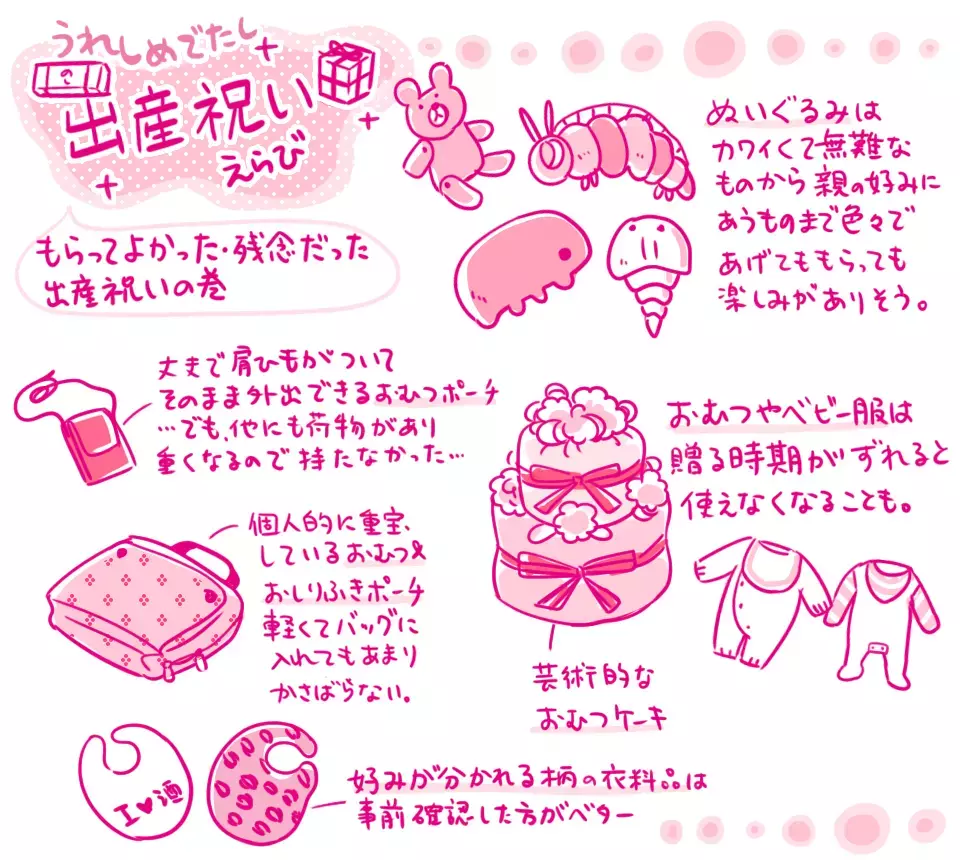 うれしめでたし
出産祝い
えらび
もらってよかった・残念だった
出産祝いの巻
ぬいぐるみは
カワイくて無難な
ものから親の好みに
あうものまで色々で
あげてももらっても
楽しみがありそう。
丈夫で肩ひもがついて
そのまま外出できるおむつポーチ
…でも、他にも荷物があり
重くなるので持たなかった…
おむつやベビー服は
贈る時期がずれると
使えなくなることも。
個人的に重宝、
しているおむつ&
おしりふきポーチ
軽くてバッグに
入れてもあまり
かさばらない。
芸術的な
おむつケーキ
I♥酒
好みが分かれる柄の衣料品は
事前確認した方がベター